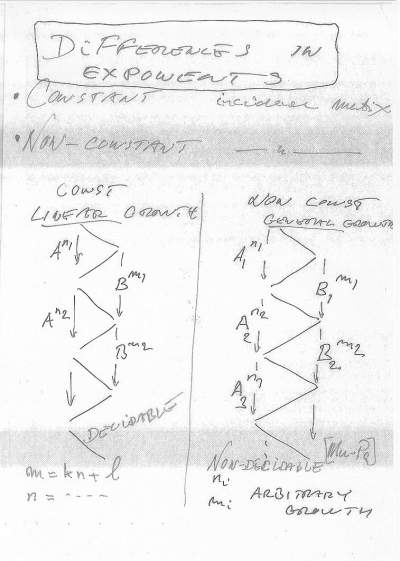 DIFFERENCES IN
EXPONENTS
• CONSTANT incidence matrix
• NON-CONSTANT — " —
CONST
LINEAR GROWTH
A^n1
B^m1
A^n2
B^m2
DECIDABLE
m = kn + l
n = - - - -
NON CONST
GENERAL GROWTH
A1^n1
B1^m1
A2^n2
B2^m2
A3^n
NON-DECIDABLE
ni
mi ARBITRARY
GROWTH